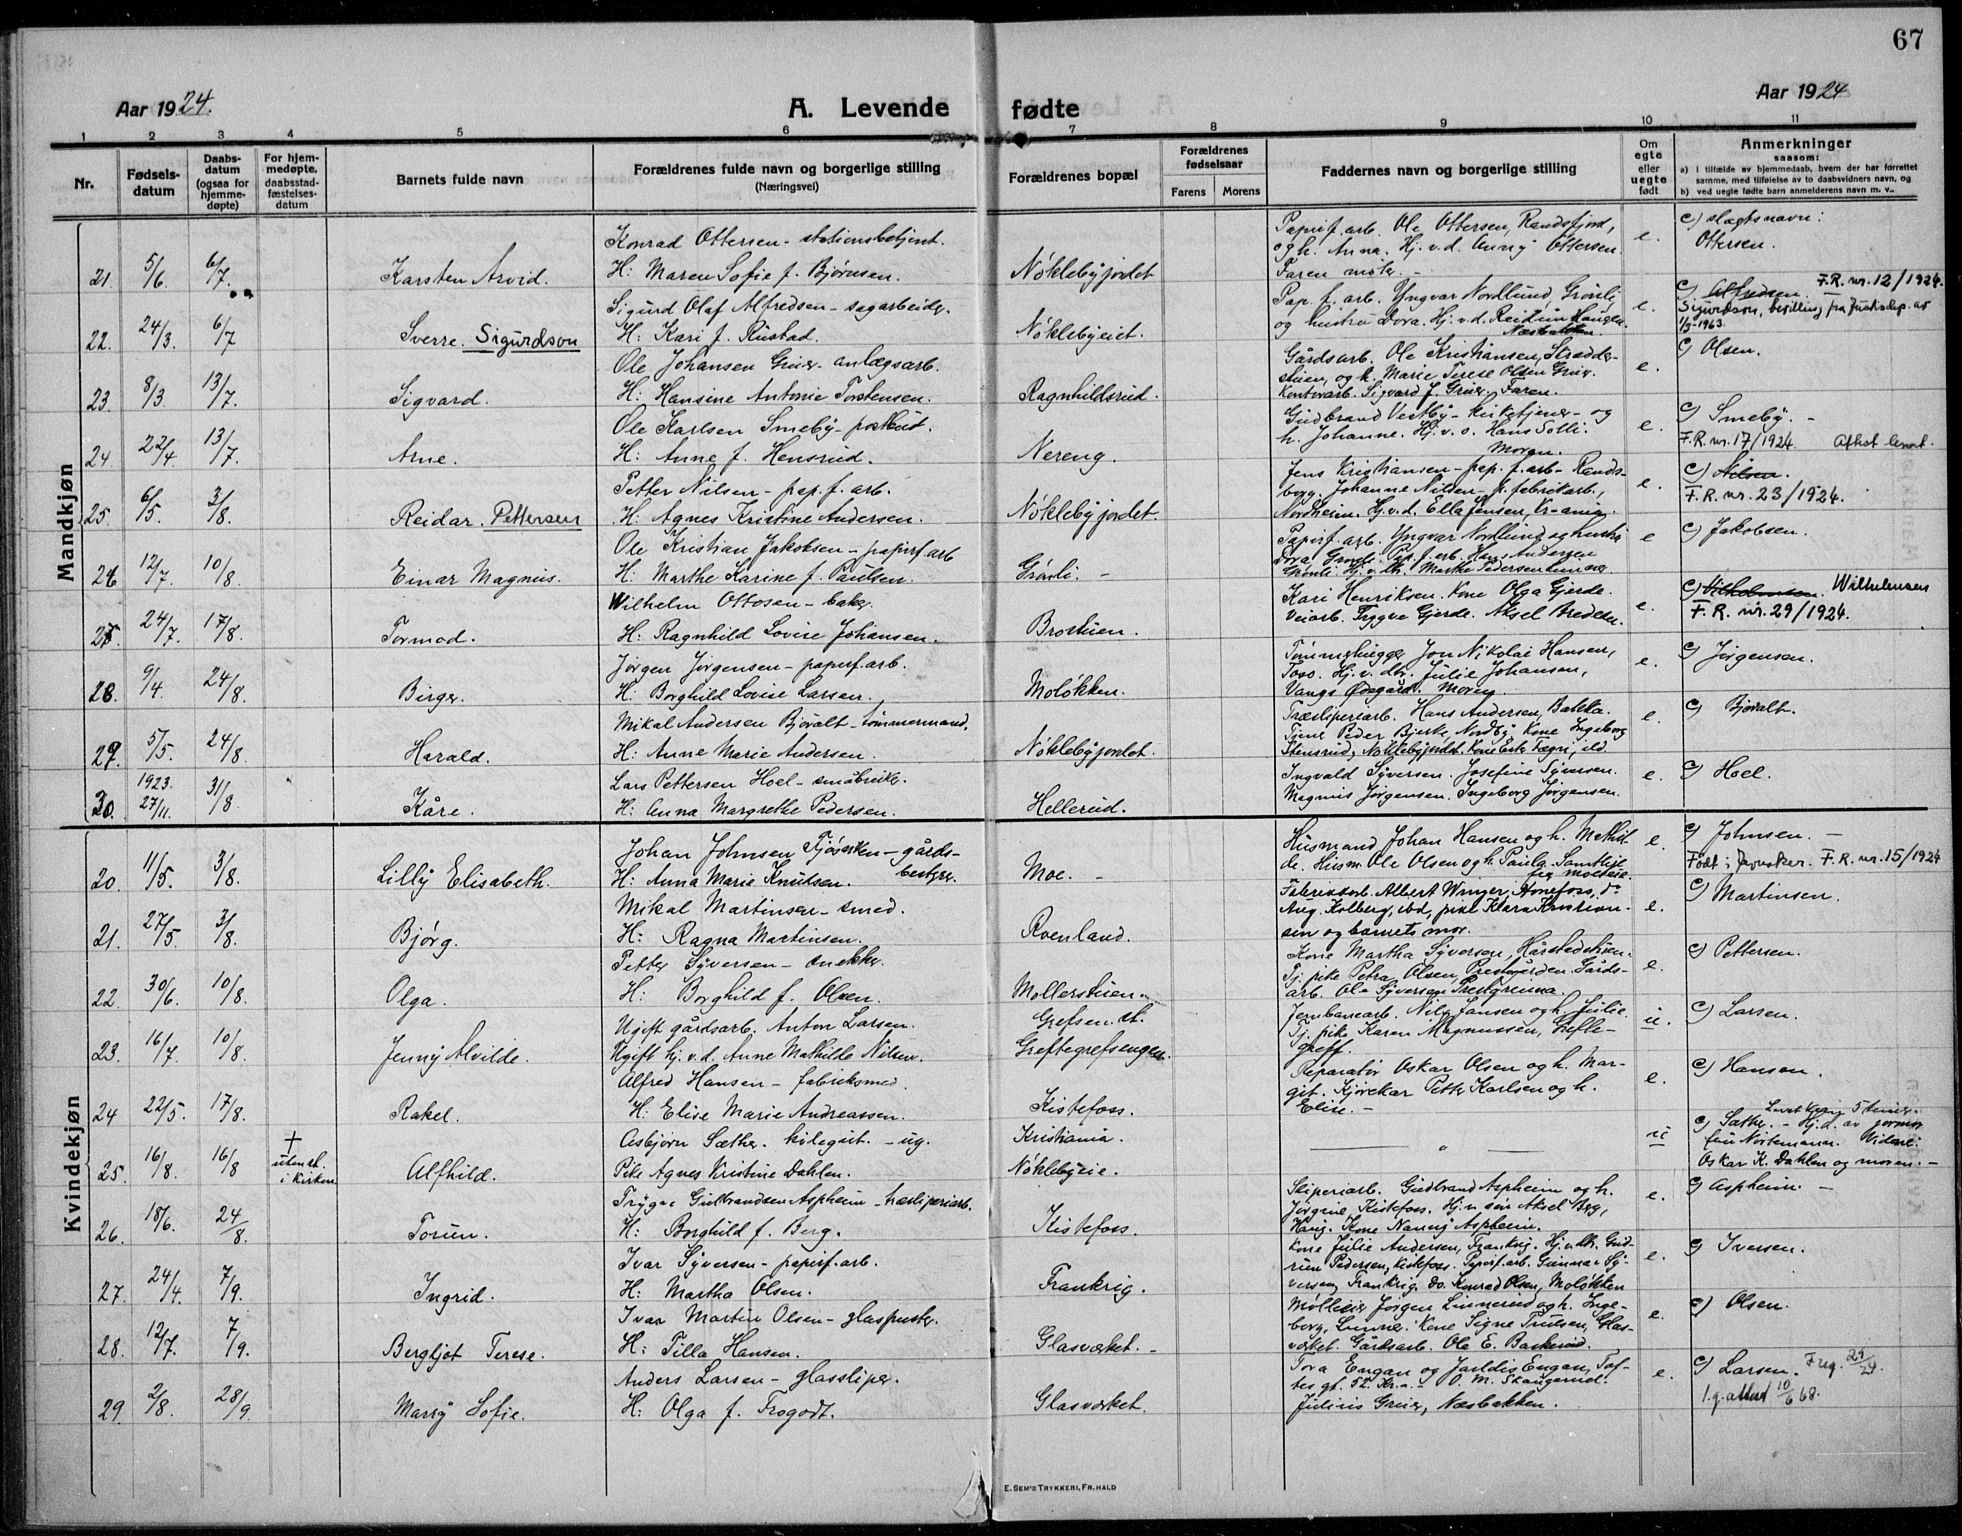 67
Aar 1924.
A. Levende fødte
Aar 1924
1 2 3 4 5 6 7 8 9 10 11
Nr.
Fødsels-
datum
Daabs-
datum
(ogsaa for
hjemme-
døpte)
For hjem-
medøpte,
daabsstad-
fæstelses-
datum
Barnets fulde navn
Forældrenes fulde navn og borgerlige stilling
(Næringsvei)
Forældrenes bopæl
Forældrenes
fødselsaar
Farens Morens
Faddernes navn og borgerlige stilling
Om
egte
eller
uegte
født
Anmerkninger
saasom:
a) i tilfælde av hjemmedaab, hvem der har forrettet
samme, med tilføielse av to daabsvidners navn, og
b) ved uegte fødte barn anmelderens navn m. v..
Mandkjøn
21. 5/6 6/7 Karsten Arvid.
Konrad Ottersen - stationsbetjent.
H: Maren Sofie f. Bjørnsen.
Nøklebyjordet
Papirf. arb. Ole Ottersen, Randsfjord,
og h. Anna. Hj.v.d. Anny Ottersen.
Faren møter. -
e.
c) slægtsnavn:
Ottersen.
22. 24/3 6/7 Sverre. Sigurdson
Sigurd Olaf Alfredsen - sagarbeider.
H: Kari f. Rustad.
Nøklebyeiet.
Pap. f. arb. Yngvar Nordlund, Grønli,
og hustru Dora. Hj.v.d. Reidun Haugen
Næsbakken.
e.
c) Alfredsen F.R. nr. 12/1924.
Sigurdson, bevilling fra Justisdep. av
1/3-1963.
23. 8/3 13/7 Sigvard.
Ole Johansen Gruer - anlægsarb.
H. Hansine Antonie Torstensen.
Ragnhildsrud.
Gårdsarb. Ole Kristiansen, Stradder-
stuen, og h. Marie Terese Olsen Gruer.
Kontorarb. Sigvard J. Gruer. Faren.
e.
c) Olsen.
24. 22/4 13/7 Arne.
Ole Karlsen Smeby - postbud.
H: Anne f. Hensrud.
Nereng.
Gudbrand Vestby - kirketjener - og
h. Johanne. Hj.v.s. Hans Solli.
Moren.
e.
c) Smeby. -
F.R. nr. 17/1924. Attest levert.
25. 6/5 3/8. Reidar. Pettersen
Petter Nilsen - pap. f. arb.
H: Agnes Kristine Andersen.
Nøklebyjordet.
Jens Kristiansen - pap. f. arb - Rands-
borg. Johanne Nilsen - p. fabrikarb.,
Nordheim. Hj.v.d. Ella Jensen,
e.
c) Nilsen
F.R. nr. 23/1924.
26 12/7. 10/8. Einar Magnus.
Ole Kristian Jakobsen - papirf. arb
H: Marthe Karine f. Paulsen.
Grønli. -
Papirf. arb. Yngvar Nordlund og hustru
Dora, Grønli. Pap. f. arb. Hans Andersen
Grønli. Hj.v.dtr. Marthe Pedersen Lunner
e
c) Jakobsen.
27. 24/7. 17/8. Tormod.
Wilhelm Ottosen - baker
H: Ragnhild Lovise Johansen.
Brostuen.
Kari Henriksen. Kone Olga Gjerde.
Veiarb. Trygve Gjerde. Aksel Bredesen.
e.
c) Vilhelmsen. Wilhelmsen
F.R. nr. 29/1924.
28. 9/4. 24/8. Birger.
Jørgen Jørgensen - papirf. arb.
H: Borghild Lovise Larsen.
Moløkken.
Tømmerhugger Jon Nikolai Hansen,
Toso. Hj.v.dtr. Julie Johansen,
Vangs Ødegård. Moren.
e.
c) Jørgensen.
29. 5/5. 24/8. Harald.
Mikal Andersen Bjøralt - tømmermand.
H: Anne Marie Andersen
Nøklebyjordet.
Træsliperiarb. Hans Andersen, Bakka.
Tjener Peder Bjerke, Nordby. Kone Ingeborg
Stensrud, Nøklebyjordet.
e.
c) Bjøralt.
30. 1923. 27/11. 31/8. Kåre.
Lars Pettersen Hoel - småbruker.
H: Anna Margrethe Pedersen.
Hellerud.
Ingvald Syversen. Josefine Syversen.
Magnus Jørgensen. Ingeborg Jørgensen.
e.
c) Hoel.
Kvindekjøn
20. 11/5. 3/8. Lilly Elisabeth.
Johan Johnsen Tjøserken - gårds-
bestyrer.
H: Anna Marie Knudsen.
Moe. -
Husmand Johan Hansen og h. Mathil-
de. Husm. Ole Olsen og h. Paula. Samtlige
fra moeeie.
e.
c) Johnsen. -
Født i Jevnaker. F.R. nr. 15/1924
21. 27/5. 3/8. Bjørg.
Mikal Martinsen - smed.
H: Ragna Martinsen.
Roenland.
Fabrikarb. Albert Winger, Hønefoss, do
Aug. Kolberg, ibd, pike Klara Kristian-
sen og barnets mor.
e.
c) Martinsen.
22. 30/6. 10/8. Olga.
Petter Syversen - snekker.
H: Borghild f. Olsen.
Mollerstuen.
Kone Martha Syversen, Hårstadstuen.
Tj. pike Petra Olsen, Prestgården. Gårds-
arb. Ole Syversen Prestgrenna.
e.
c) Pettersen.
23. 16/7. 10/8. Jenny Alvilde.
Ugift gårdsarb. Anton Larsen.
Ugift hj.v.d. Anne Mathilde Nilsen.
Grefsen st.
Greftegrefsengen.
Jernbanearb. Nils Jansen og h. Julie.
Tj. pike Karen Magnussen, Grefte-
greff.
u.
c) Larsen.
24 22/5. 17/8. Rakel.
Alfred Hansen - fabriksmed.
H: Elise Marie Andreassen.
Kistefoss.
Reparatør Oskar Olsen og h. Mar-
git. Kjørekar Petter Karlsen og h.
Elise. -
e.
c) Hansen.
25. 16/8. 16/8 † uten st. i kirken Alfhild.
Asbjørn Sæther. - ug.
Pike Agnes Kristine Dahlen.
Kristiania.
Nøklebyeie.
"
u
Levet kun 5 timer.
c) Sæther. - Hj.d. av jormor
fru Nortemann. Vidner:
Oskar K. Dahlen og moren. -
26. 18/6. 24/8. Torun.
Trygve Gulbrandsen Aspheim - træsliperiarb.
H: Borghild f. Berg.
Kistefoss.
Sliperiarb. Gudbrand Aspheim og h.
Jørgine Kistefoss. Hj.v. søn Aksel Berg,
Haug. Kone Nanny Aspheim.
e.
c) Aspheim. -
27. 24/4. 7/9. Ingrid.
Ivar Syversen - papirf. arb.
H: Martha Olsen.
Frankrig.
Kone Julie Andersen, Frankrig. Hj.v.dtr. Gud-
run Pedersen, Kistefoss. Papirf. arb. Gunnar Sy-
versen, Frankrig. Do. Konrad Olsen, Moløkken
e.
c) Iversen.
28. 12/7. 7/9. Bergljot Terese.
Ivar Martin Olsen - glaspuster.
H: Tilla Hansen.
Glasverket. -
Mølleeier Jørgen Linnerud og h. Inge-
borg, Lunner. Kone Signe Truelsen, Glas-
verket. Gårdsarb. Ole E. Bankerud.
e.
c) Olsen.
29. 2/8. 28/9. Marry Sofie.
Anders Larsen - glassliper.
H: Olga f. Frogodt.
Glasverket.
Tora Engan og Jarldis Engan, Tof-
tes gt. 52. Kr.a - O. M. Skaugerud.
Julius Gruer, Næsbakken.
e.
c) Larsen. F reg. 29/24.
1.g. attest 10/6 68.
E. Sem's Trykkeri, Fr.hald